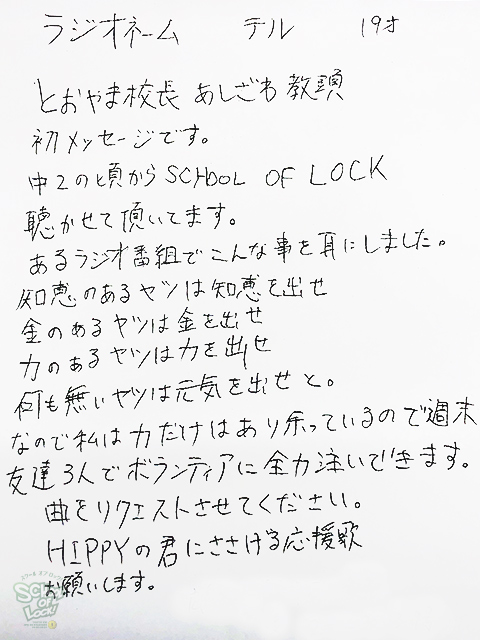 ラジオネーム テル 19才
とおやま校長 あしざわ教頭
初メッセージです。
中2の頃からSCHOOL OF LOCK
聴かせて頂いてます。
あるラジオ番組でこんな事を耳にしました。
知恵のあるヤツは知恵を出せ
金のあるヤツは金を出せ
力のあるヤツは力を出せ
何も無いヤツは元気を出せと。
なので私は力だけはあり余っているので週末
友達3人でボランティアに全力注いできます。
曲をリクエストさせてください。
HIPPYの君にささげる応援歌
お願いします。
スクール オブ ロック
SCHOOL
OF
LOCK!